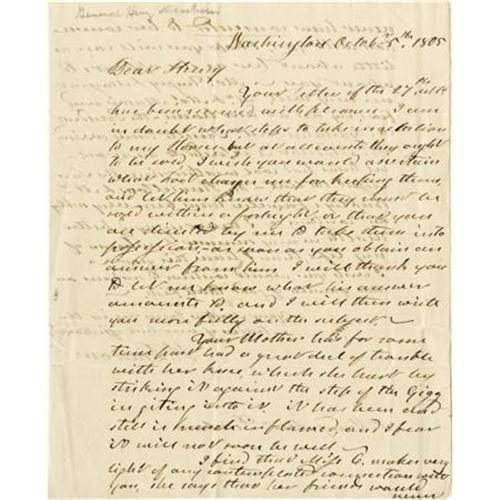 General Henry Dearborn
Washington Octobr. 5th. 1805
Dear Henry
Your letter of the 27th ulto
has been received with pleasure, I am
in doubt what steps to take in relation
to my Horses but at all events they ought
to be sold, I wish you would ascertain
what charges me for keeping them,
and let him know that they must be
sold within a fortnight, or that you
are directed by me to take them into
possession, as soon as you obtain an
answer from him I will thank you
to let me know what his answer
amounts to and I will then write
you more fully on the subject.
Your Mother has for some
time past had a great deal of trouble
with her knee which she hurt by
striking it against the step of the Gigg
in giting into it it has been and
still is much inflamed, and I fear
it will not soon be well
I find that Miss G. makes very
light of any contemplated connection with
you, she says that her friends would
never